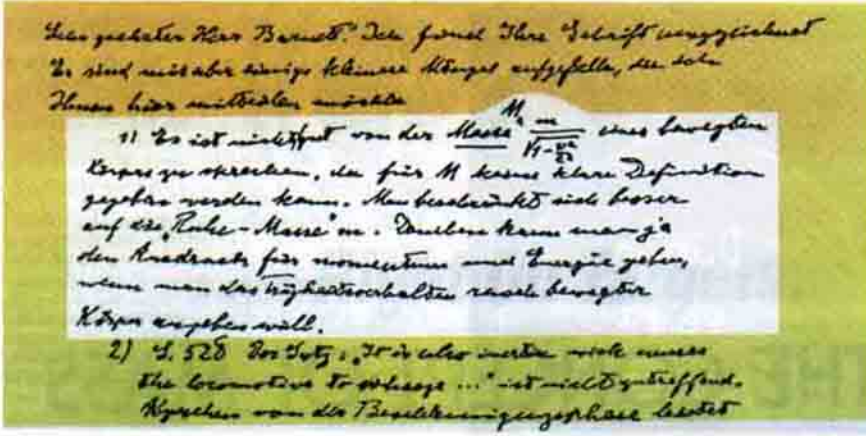 Sehr geehrter Herr Barnett! Ich finde Ihre Schrift ausgezeichnet
Es sind mir aber einige kleinere Mängel aufgefallen, die ich
Ihnen hier mitteilen möchte
1) Es ist nicht gut von der Masse M = m/√(1-v²/c²) eines bewegten
Körpers zu sprechen, da für M keine klare Definition
gegeben werden kann. Man beschränkt sich besser
auf die "Ruhe-Masse" m. Daneben kann man ja
den Ausdruck für momentum und Energie geben,
wenn man das Trägheitsverhalten rasch bewegter
Körper angeben will.
2) S. 528 Der Satz: "It is also inertia which
the locomotive to ..." ist nicht zutreffend.
Abgesehen von der Beschleunigungsphase leistet